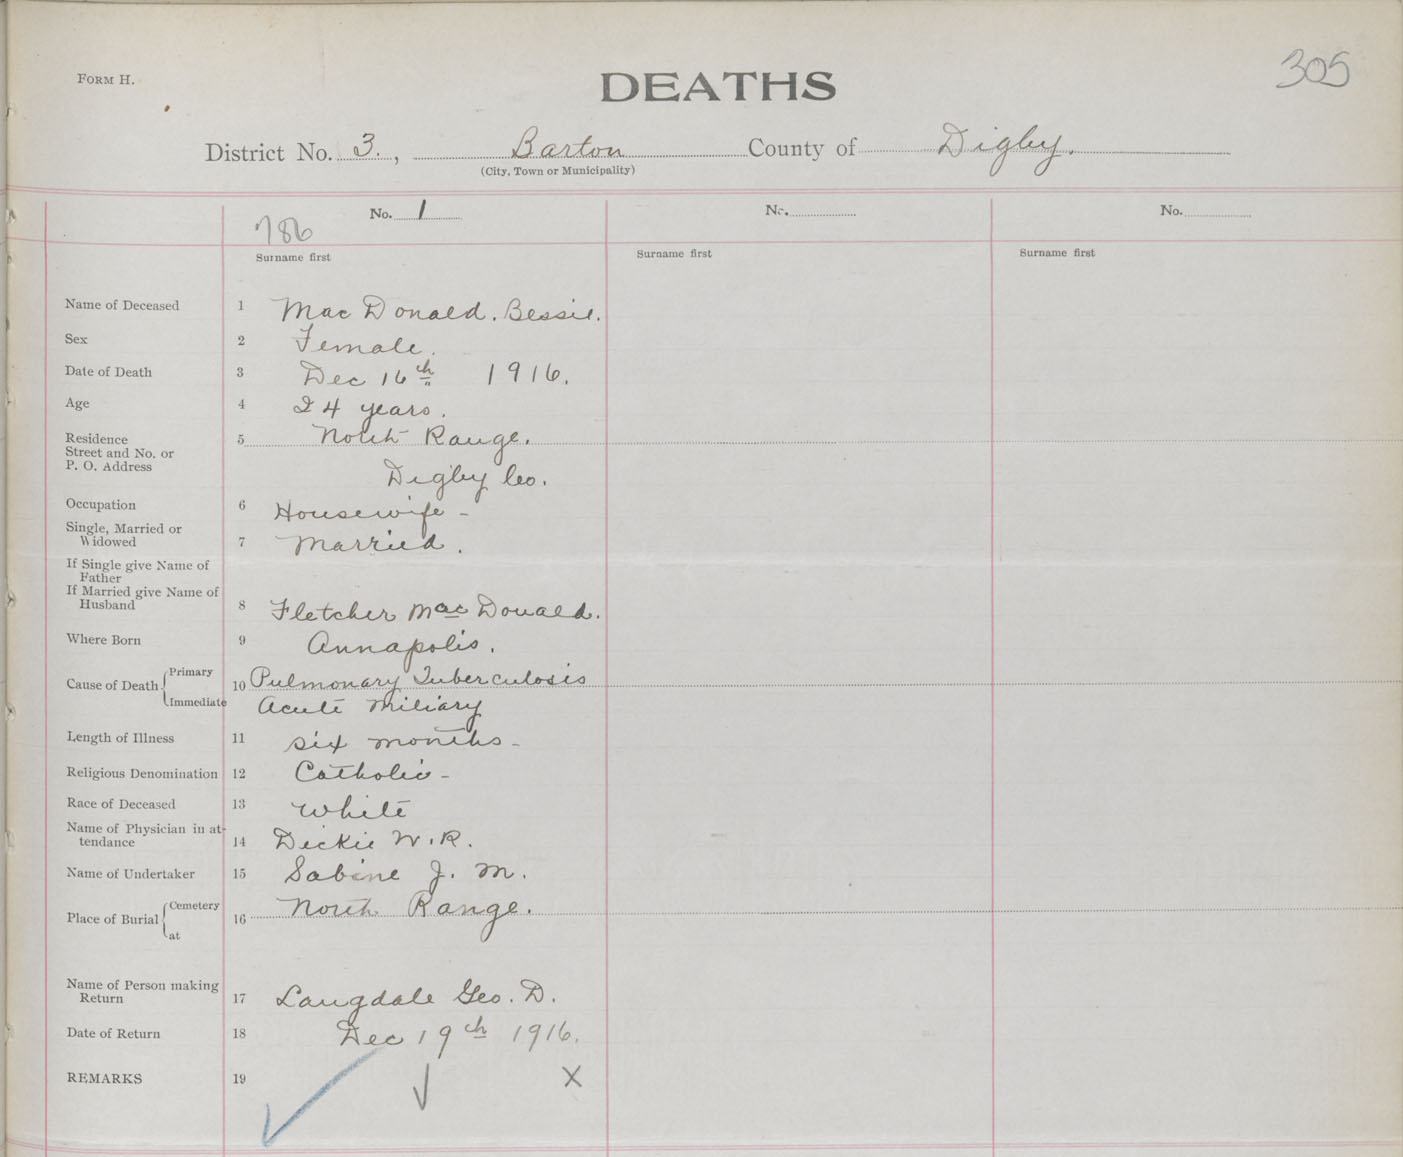 FORM H.
DEATHS
305
District No. 3. , Barton County of Digby.
(City, Town or Municipality)
No. 1
No.
No.
786
Surname first
Surname first
Surname first
Name of Deceased 1 Mac Donald. Bessie.
Sex 2 Female.
Date of Death 3 Dec 16th 1916.
Age 4 24 years.
Residence 5 North Range.
Street and No. or
P. O. Address
Digby Co.
Occupation 6 Housewife -
Single, Married or
Widowed 7 Married.
If Single give Name of
Father
If Married give Name of
Husband 8 Fletcher Mac Donald.
Where Born 9 Annapolis.
Cause of Death Primary
10 Pulmonary Tuberculosis
Immediate Acute Miliary
Length of Illness 11 six months -
Religious Denomination 12 Catholic -
Race of Deceased 13 White
Name of Physician in at-
tendance 14 Dickie W. R.
Name of Undertaker 15 Sabine J. M.
Place of Burial Cemetery
16 North Range.
at
Name of Person making
Return 17 Langdale Geo. D.
Date of Return 18 Dec 19th 1916.
REMARKS 19 X